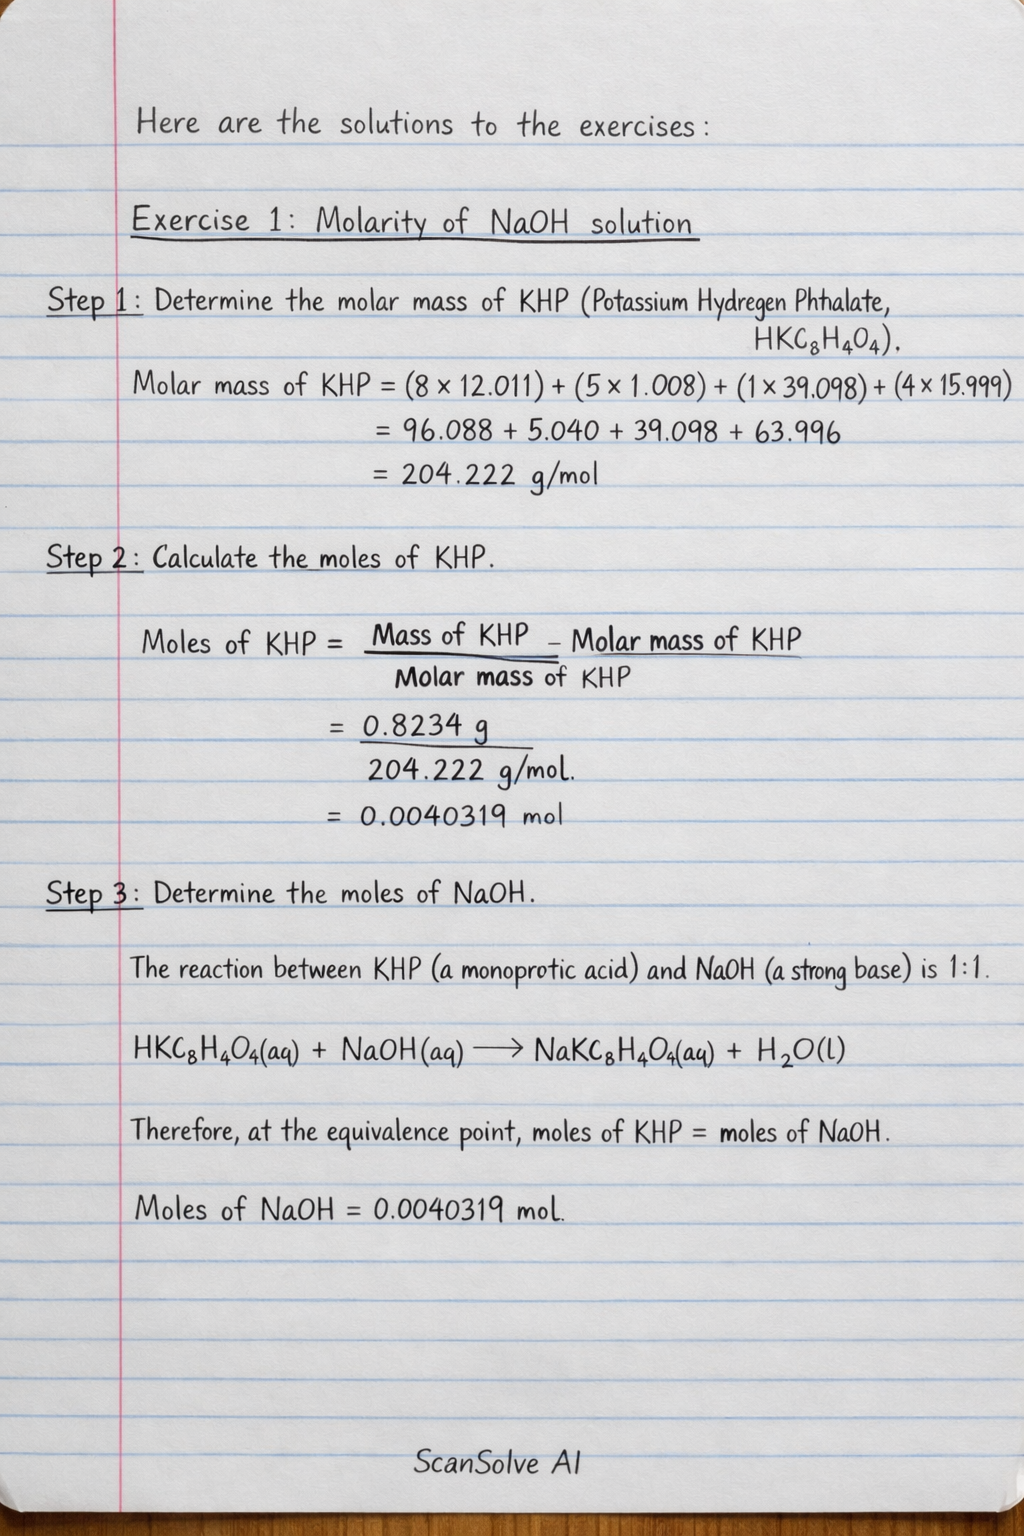 Here are the solutions to the exercises:
Exercise 1: Molarity of NaOH solution
Step 1: Determine the molar mass of KHP (Potassium Hydrogen Phthalate,
HKC₈H₄O₄).
Molar mass of KHP = (8 × 12.011) + (5 × 1.008) + (1 × 39.098) + (4 × 15.999)
= 96.088 + 5.040 + 39.098 + 63.996
= 204.222 g/mol
Step 2: Calculate the moles of KHP.
Moles of KHP = Mass of KHP – Molar mass of KHP
Molar mass of KHP
= 0.8234 g
204.222 g/mol.
= 0.0040319 mol
Step 3: Determine the moles of NaOH.
The reaction between KHP (a monoprotic acid) and NaOH (a strong base) is 1:1.
HKC₈H₄O₄(aq) + NaOH(aq) ⟶ NaKC₈H₄O₄(aq) + H₂O(l)
Therefore, at the equivalence point, moles of KHP = moles of NaOH.
Moles of NaOH = 0.0040319 mol.
ScanSolve AI